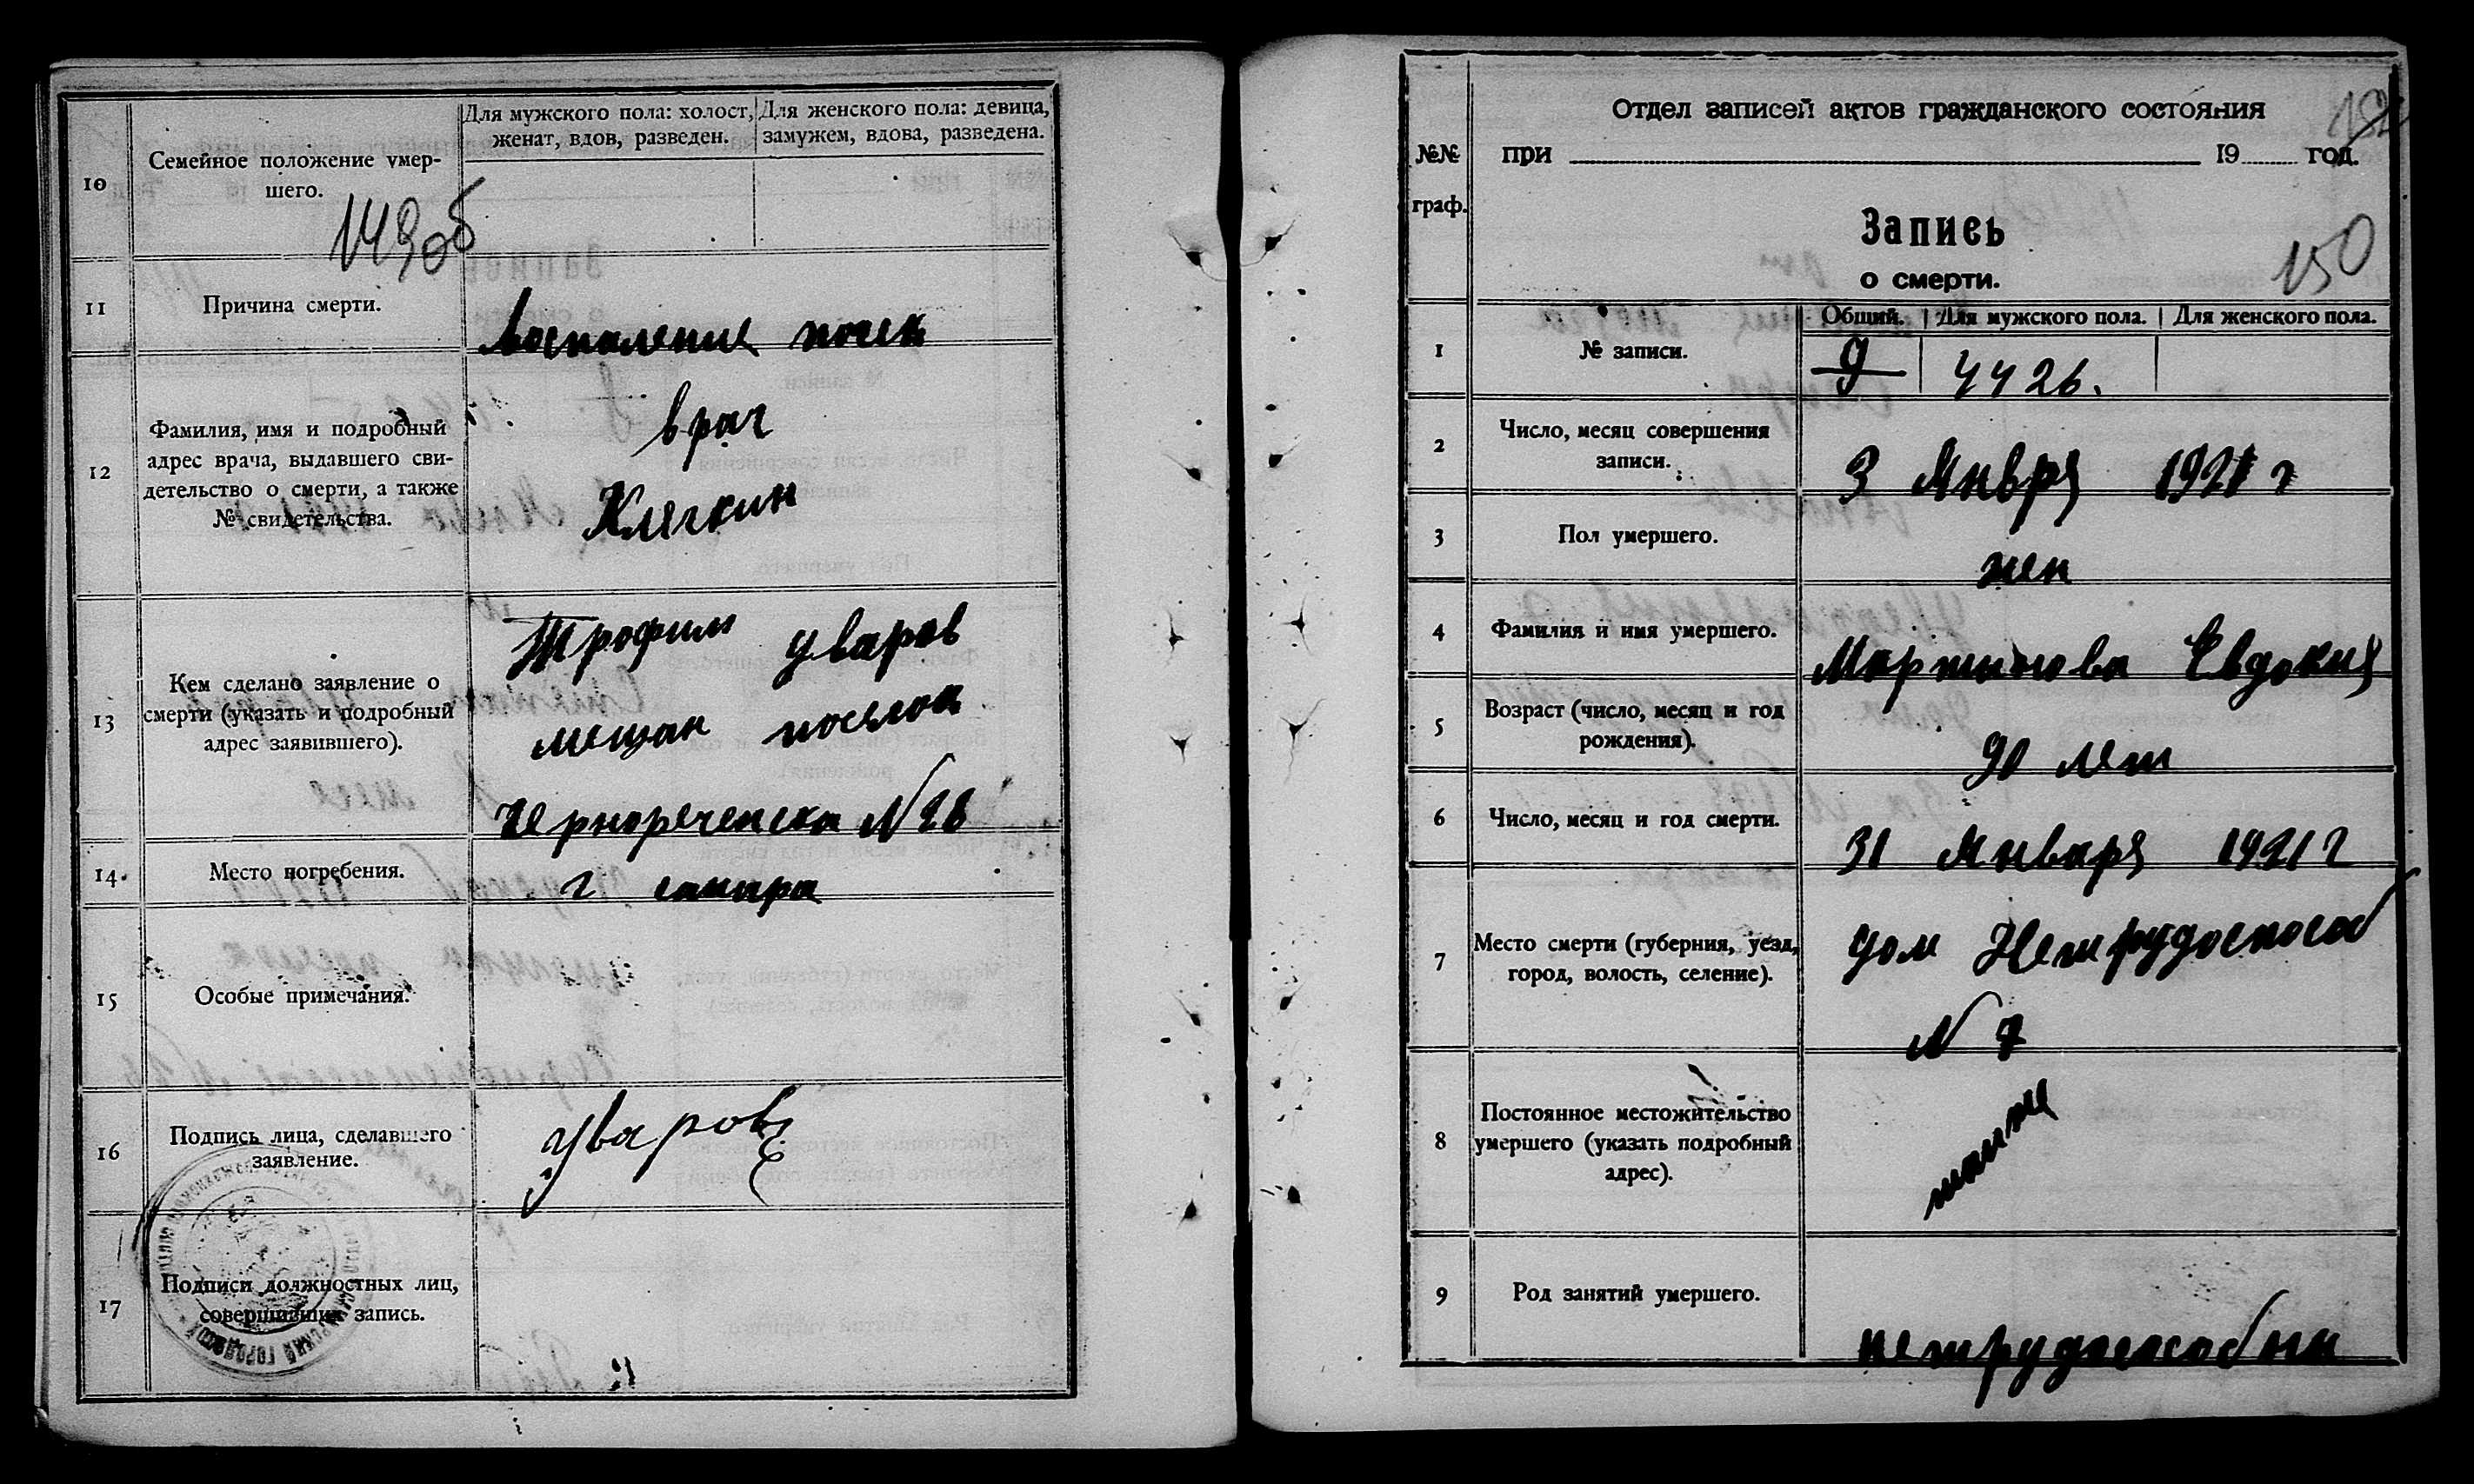 10
Семейное положение умер-
шего.
Для мужского пола: холост,
женат, вдов, разведен.
Для женского пола: девица,
замужем, вдова, разведена.
149об
11
Причина смерти.
Воспаление почек
12
Фамилия, имя и подробный
адрес врача, выдавшего сви-
детельство о смерти, а также
№ свидетельства.
врач
Клячкин
13
Кем сделано заявление о
смерти (указать и подробный
адрес заявившего).
Трофим Уваров
мещан поселок
Чернореченска N 28
14.
Место погребения.
г самара
15
Особые примечания.
16
Подпись лица, сделавшего
заявление.
Уваров
17
Подписи должностных лиц,
совершивших запись.
№№
граф.
Отдел записей актов гражданского состояния
при 19 год.
150
Запись
о смерти.
1
№ записи.
Общий. Для мужского пола. Для женского пола.
9 4426.
2
Число, месяц совершения
записи.
3 Январ 1921 г
3
Пол умершего.
жен
4
Фамилия и имя умершего.
Мартынова Евдокия
5
Возраст (число, месяц и год
рождения).
90 лет
6
Число, месяц и год смерти.
31 Января 1921 г
7
Место смерти (губерния, уезд,
город, волость, селение).
Дом Нетрудоспособ
N 7
8
Постоянное местожительство
умершего (указать подробный
адрес).
там же
9
Род занятий умершего.
нетрудоспособны